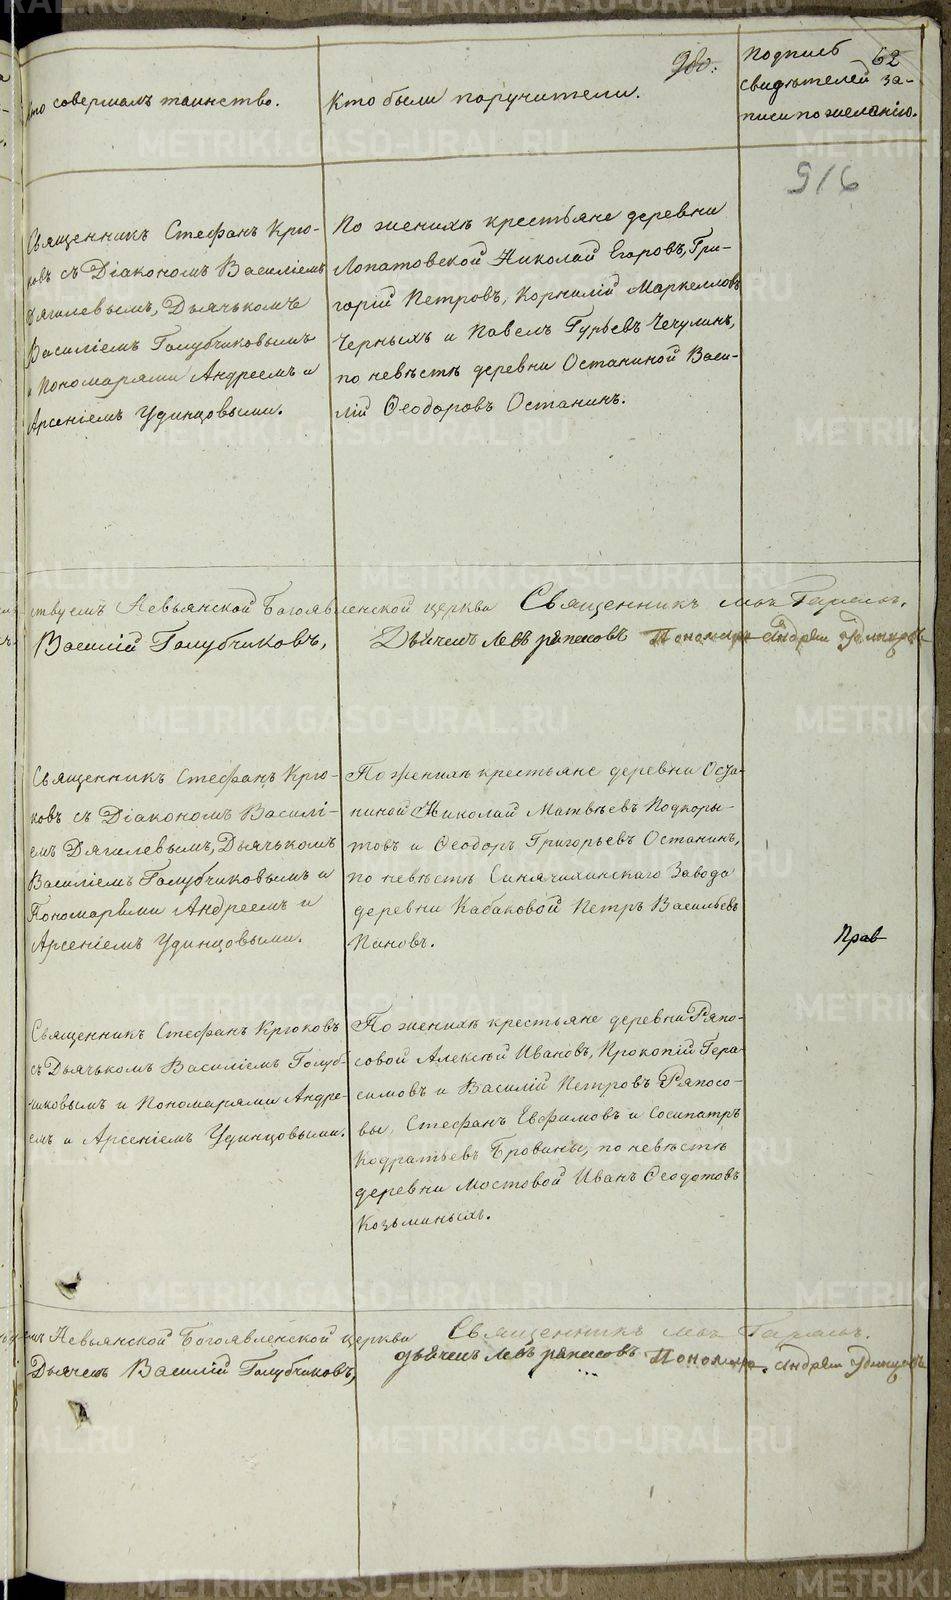 Кто совершалъ таинство.
Кто были поручители.
980.
Подписъ
свидѣтелей за-
писи по желанію.
62
916
Священникъ Стефанъ Крю-
ковъ съ Діакономъ Василіемъ
Дягилевымъ, Дьячькомъ
Василіемъ Голубчиковымъ
и Пономарями Андреемъ и
Арсеніемъ Удинцовыми.
По женихѣ крестьяне деревни
Лопатовской Николай Егоровъ, Гри-
горій Петровъ, Корнилій Маркелловъ
Черныхъ и Павелъ Гурьевъ Чечулинъ,
по невѣстѣ деревни Останиной Васи-
лій Ѳеодоровъ Останинъ.
ствуемъ Невьянской Богоявленской церкви Священникъ
Василій Голубчиковъ, Дьячекъ Левъ Пономарь Андрей Удинцовъ
Священникъ Стефанъ Крю-
ковъ съ Діакономъ Василі-
емъ Дягилевымъ, Дьячькомъ
Василіемъ Голубчиковымъ и
Пономарями Андреемъ и
Арсеніемъ Удинцовыми.
По женихѣ крестьяне деревни Оста-
ниной Николай Матвѣевъ Подкоры-
товъ и Ѳеодоръ Григорьевъ Останинъ,
по невѣстѣ Синячихинскаго Завода
деревни Кабаковой Петръ Васильевъ
Пановъ.
Прав
Священникъ Стефанъ Крюковъ
съ Дьячькомъ Василіемъ Голуб-
чиковымъ и Пономарями Андре-
емъ и Арсеніемъ Удинцовыми.
По женихѣ крестьяне деревни Ряпо-
совой Алексѣй Ивановъ, Прокопій Гера-
симовъ и Василій Петровъ Ряпосо-
вы, Стефанъ Евфимовъ и Сосипатръ
Кодратьевъ Бровины, по невѣстѣ
деревни Мостовой Иванъ Ѳеодотовъ
Козьминыхъ.
Невьянской Богоявленской церкви Священникъ
Дьячекъ Василій Голубчиковъ, Дьячекъ Левъ Пономарь Андрей Удинцовъ
METRIKI.GASO-URAL.RU